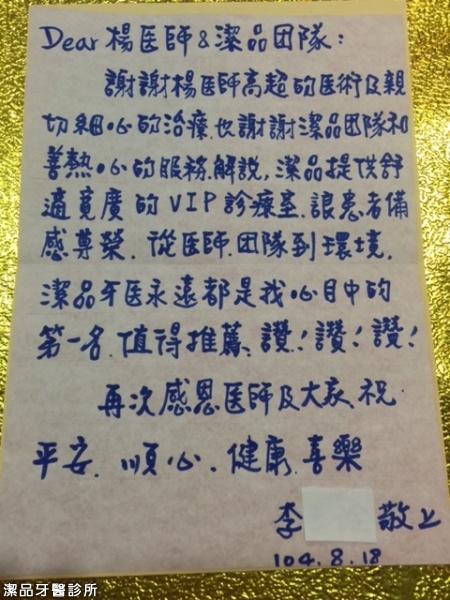 Dear 楊医師&潔品团隊:
謝謝楊医師高超的医術及親
切細心的治療.也謝謝潔品团隊和
善熱心的服務.解說,潔品提供舒
適寬廣的VIP診療室.讓患者備
感尊榮.從医師.团隊到環境.
潔品牙医永遠都是我心目中的
第一名.值得推薦.讚!讚!讚!
再次感恩医師及大家.祝.
平安.順心.健康.喜樂
李 敬上
104.8.18
潔品牙醫診所